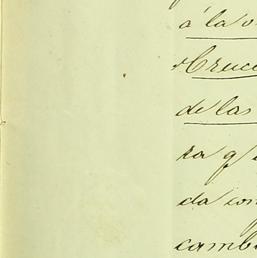 á la v
Cruce
de las
ra q
da con
camb